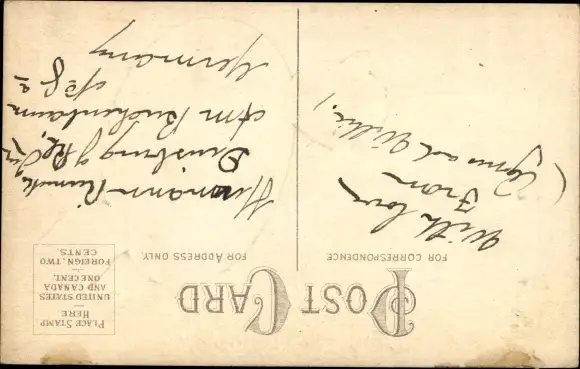 POST CARD
FOR CORRESPONDENCE
FOR ADDRESS ONLY
PLACE STAMP
HERE
UNITED STATES
AND CANADA
ONE CENT.
FOREIGN, TWO
CENTS.
With love
From
(Agnes and Willie.)
Hermann
Duisburg
Am Buchenbaum
No 8
Germany